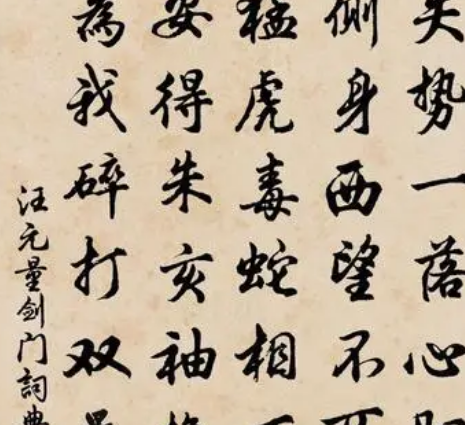 失势一落心
侧身西望不可
猛虎毒蛇相
安得朱亥袖
為我碎打双
汪元量剑门詞